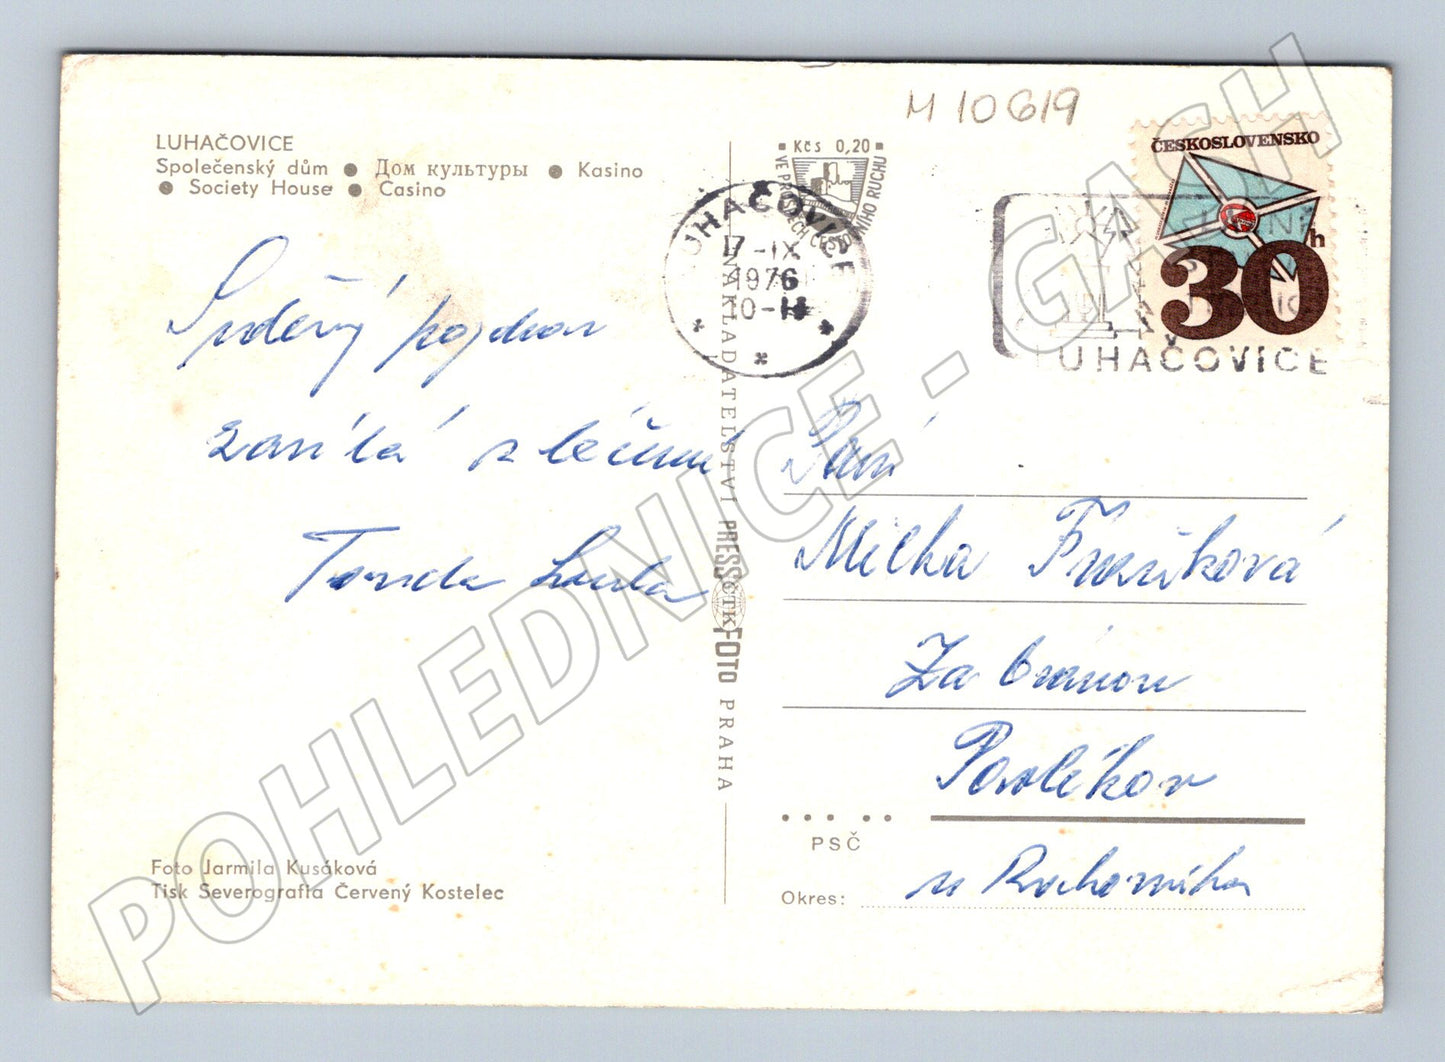 M 10619
LUHAČOVICE
Společenský dům ● Дом культуры ● Kasino
● Society House ● Casino
Kčs 0,20
VE PROSPĚCH CESTOVNÍHO RUCHU
ČESKOSLOVENSKO
30h
LUHAČOVICE
17-IX
1976
10-
LUHAČOVICE
Srdečný pozdrav
zasílá z léčení
Tonda
Paní
Milka
Za branou
Pavlíkov
u Rakovníka
NAKLADATELSTVÍ PRESSFOTO PRAHA
ČTK
PSČ
Okres:
Foto Jarmila Kusáková
Tisk Severografia Červený Kostelec
POHLEDNICE - GASH